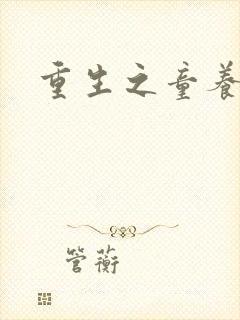 重生之童养
管蘅